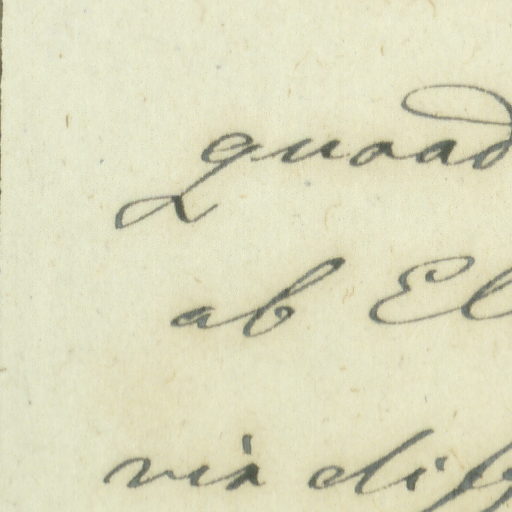 quoad
ab El
vix diff